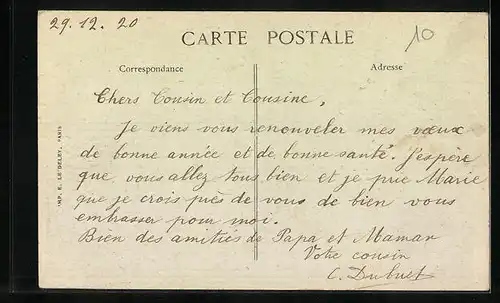 29.12.20
10
CARTE POSTALE
Correspondance
Adresse
Chers Cousin et Cousine,
Je viens vous renouveler mes vœux
de bonne année et de bonne santé. J'espère
que vous allez tous bien et je prie Marie
que je crois près de vous de bien vous
embrasser pour moi.
Bien des amitiés de Papa et Maman
Votre cousin
C. Dubuet
IMP. E. LE DELEY, PARIS